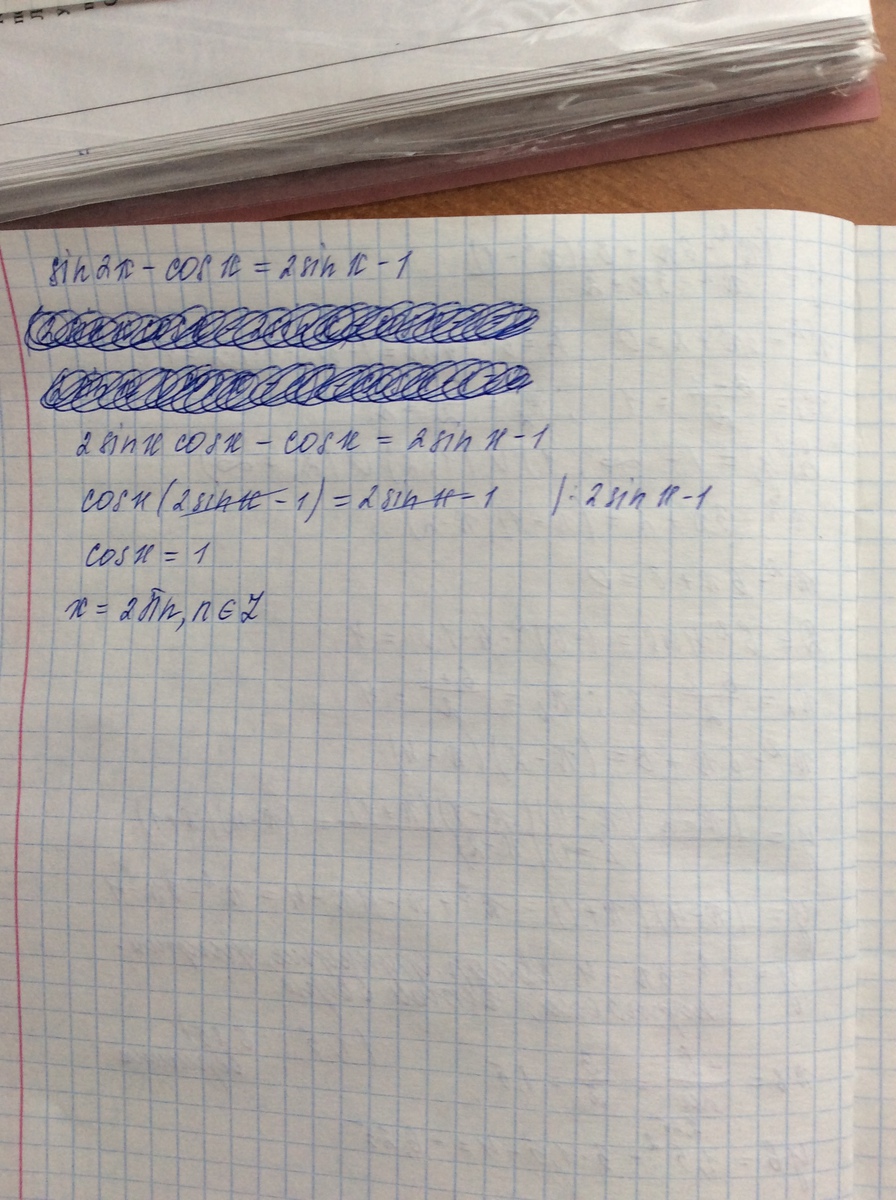 sin 2x - cos x = 2 sin x - 1
2 sin x cos x - cos x = 2 sin x - 1
cos x (2 sin x - 1) = 2 sin x - 1 | : 2 sin x - 1
cos x = 1
x = 2πn, n ∈ Z